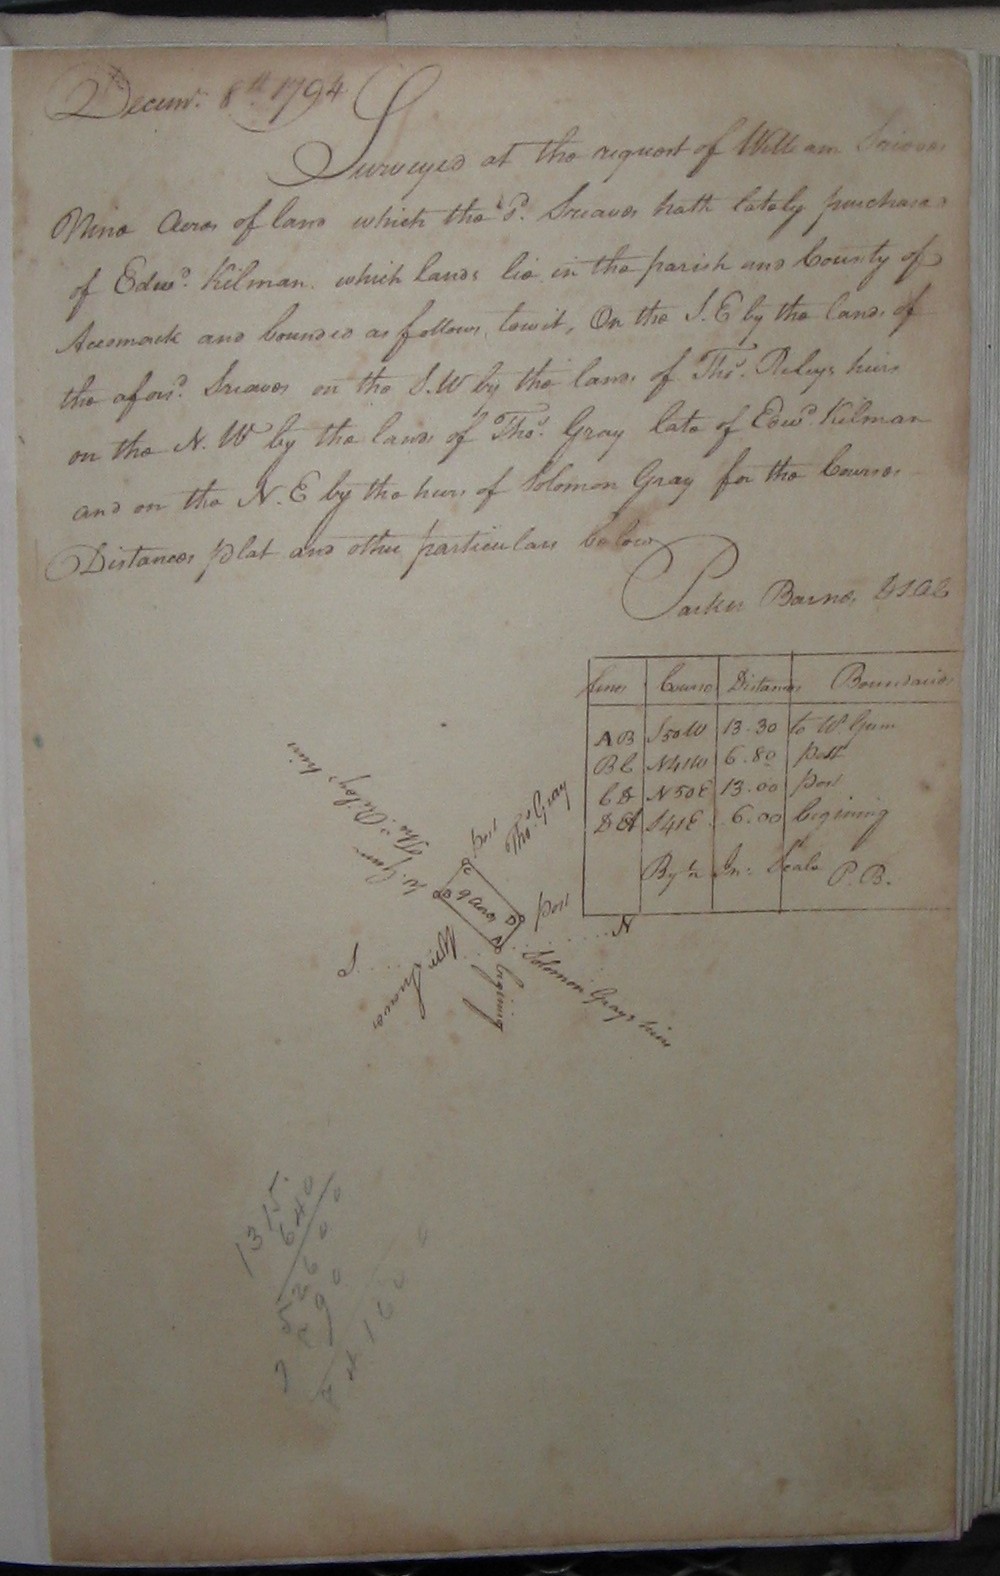 Decemr. 8th 1794
Surveyed at the request of William
Nine Acres of land which the sd. hath lately purchased
of Edwd. Kilman which lands lie in the parish and County of
Accomack and bounded as follows, towit, On the S.E by the lands of
the aforsd. on the S.W by the lands of Thos. Rileys heirs
on the N.W by the lands of Thos. Gray late of Edwd. Kilman
and on the N.E by the heirs of Solomon Gray for the Courses
Distances plat and other particulars below
Parker Barnes
Lines Course Distances Boundaries
AB S50W 13.30 to W. Gum
BC N41W 6.80 post
CD N50E 13.00 post
DA S41E 6.00 begining
By 12 In: Scale P.B.
Thos. Rileys heirs
W. Gum
C post
Thos. Gray
B 9 acres D post
A begining
S N
Wm.
Solomon Grays heirs
1315
640
52600
7890